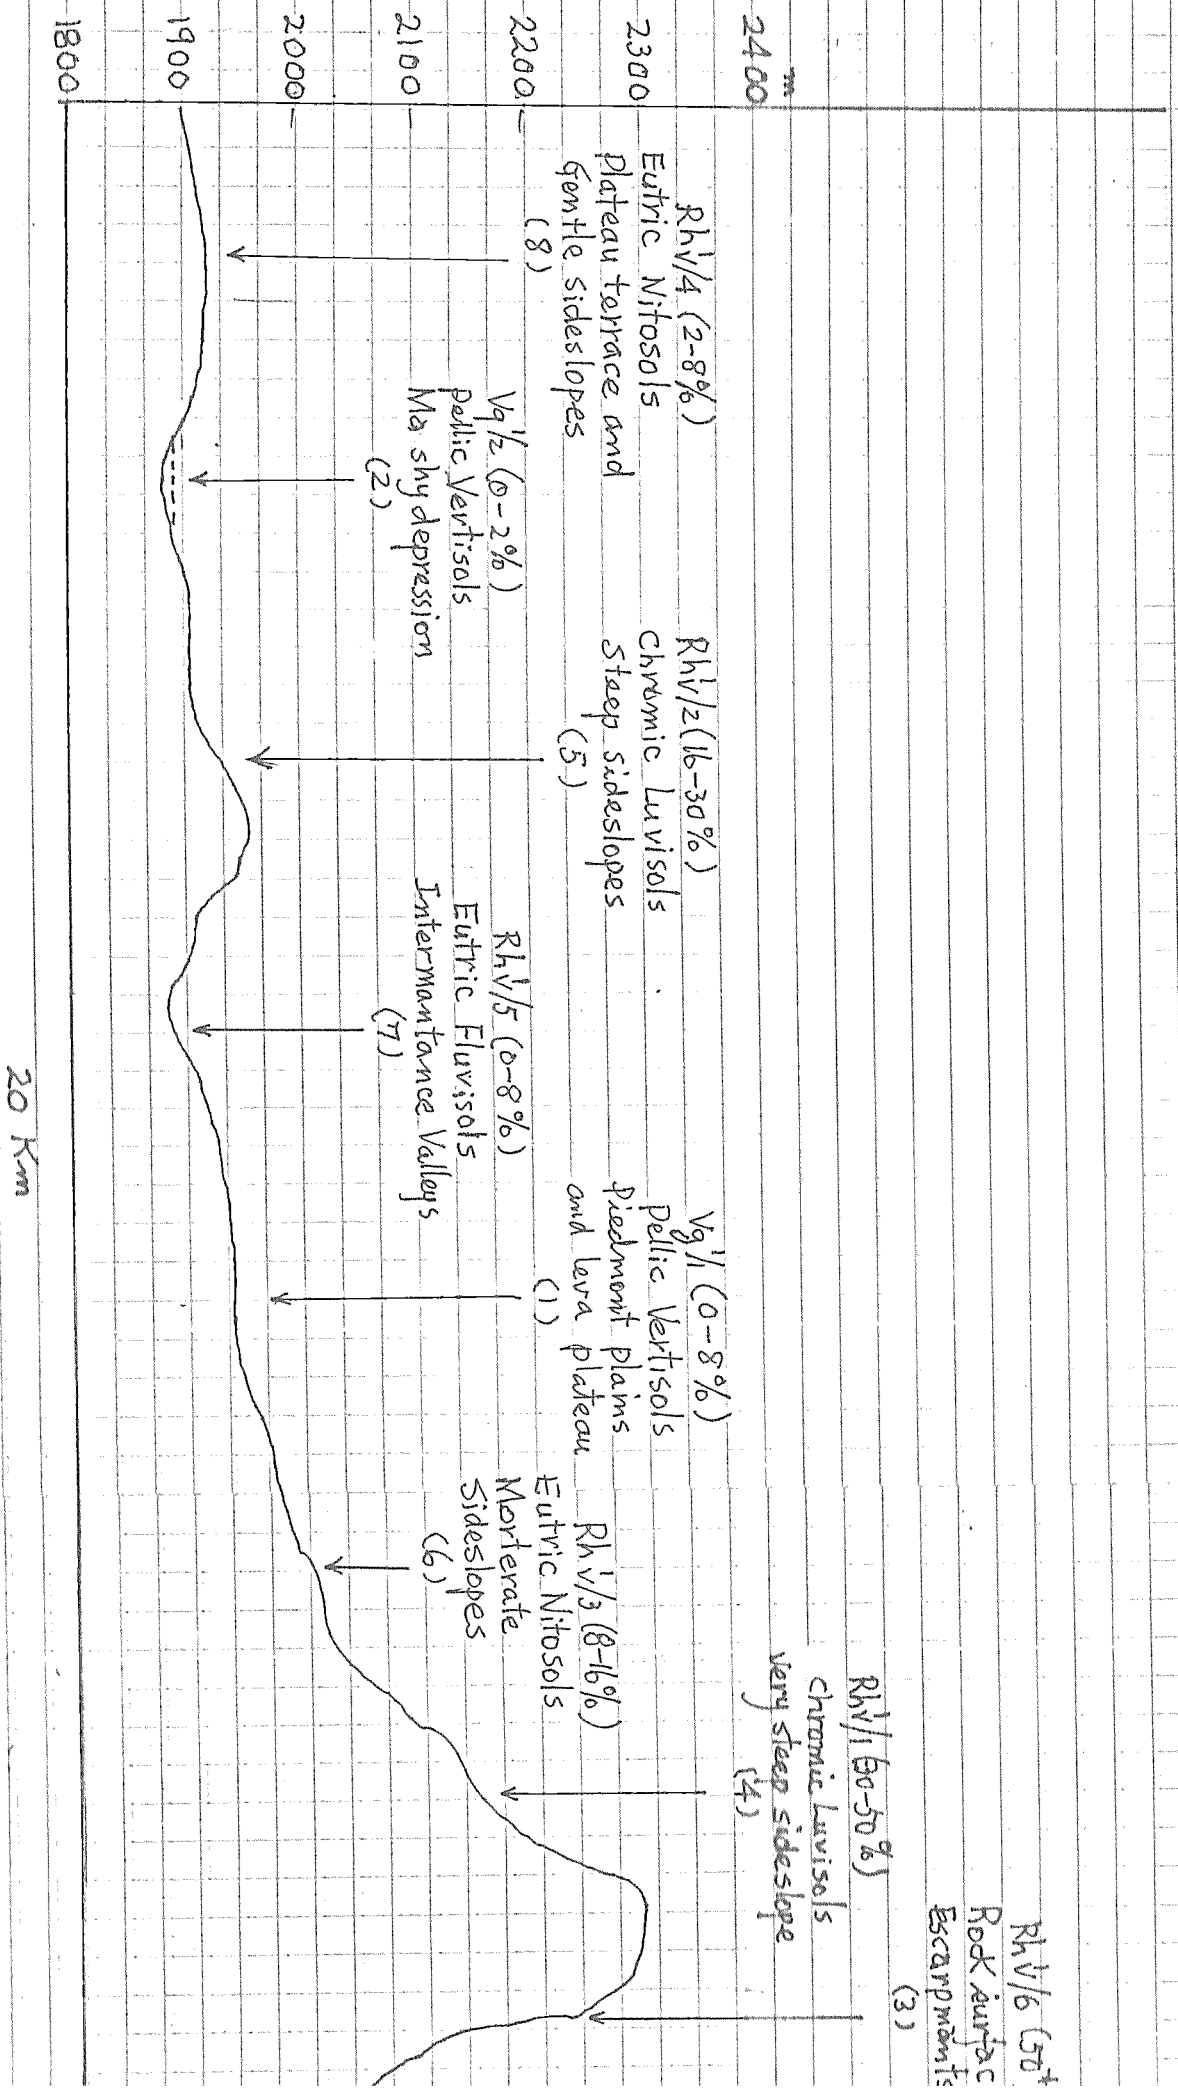 m
2400
2300
2200
2100
2000
1900
1800
Rhv1/4 (2-8%)
Eutric Nitosols
Plateau terrace and
Gentle sideslopes
(8)
Vg1/2 (0-2%)
Pellic Vertisols
Mashy depression
(2)
Rhv1/2 (16-30%)
Chromic Luvisols
Steep sideslopes
(5)
Rhv1/5 (0-8%)
Eutric Fluvisols
Intermantance Valleys
(7)
Vg1/1 (0-8%)
Pellic Vertisols
Piedmont plains
and leva plateau
(1)
Rhv1/3 (8-16%)
Eutric Nitosols
Morterate
Sideslopes
(6)
Rhv1/1 (30-50%)
Chromic Luvisols
Very steep sideslope
(4)
Rhv1/6 (50+
Rock surfac
Escarpments
(3)
20 Km